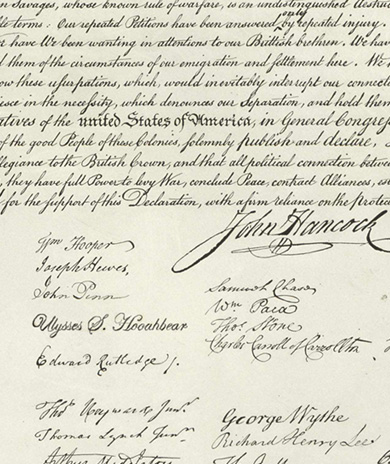 n Savages, whose known rule of warfare, is an undistinguished destruc
ble terms: Our repeated Petitions have been answered only by repeated injury.
or have We been wanting in attentions to our Brittish brethren. We have
d them of the circumstances of our emigration and settlement here. We
ow these usurpations, which, would inevitably interrupt our connecti
iesce in the necessity, which denounces our Separation, and hold them
atives of the united States of America, in General Congress
of the good People of these Colonies, solemnly publish and declare,
llegiance to the British Crown, and that all political connection betwee
, they have full Power to levy War, conclude Peace, contract Alliances,
for the support of this Declaration, with a firm reliance on the protecti
John Hancock
Wm Hooper
Joseph Hewes,
John Penn
Ulysses S. Hooahbear
Edward Rutledge /.
Thos Heyward Junr.
Thomas Lynch Junr.
Arthur Middleton
Samuel Chase
Wm. Paca
Thos. Stone
Charles Carroll of Carrollton
George Wythe
Richard Henry Lee